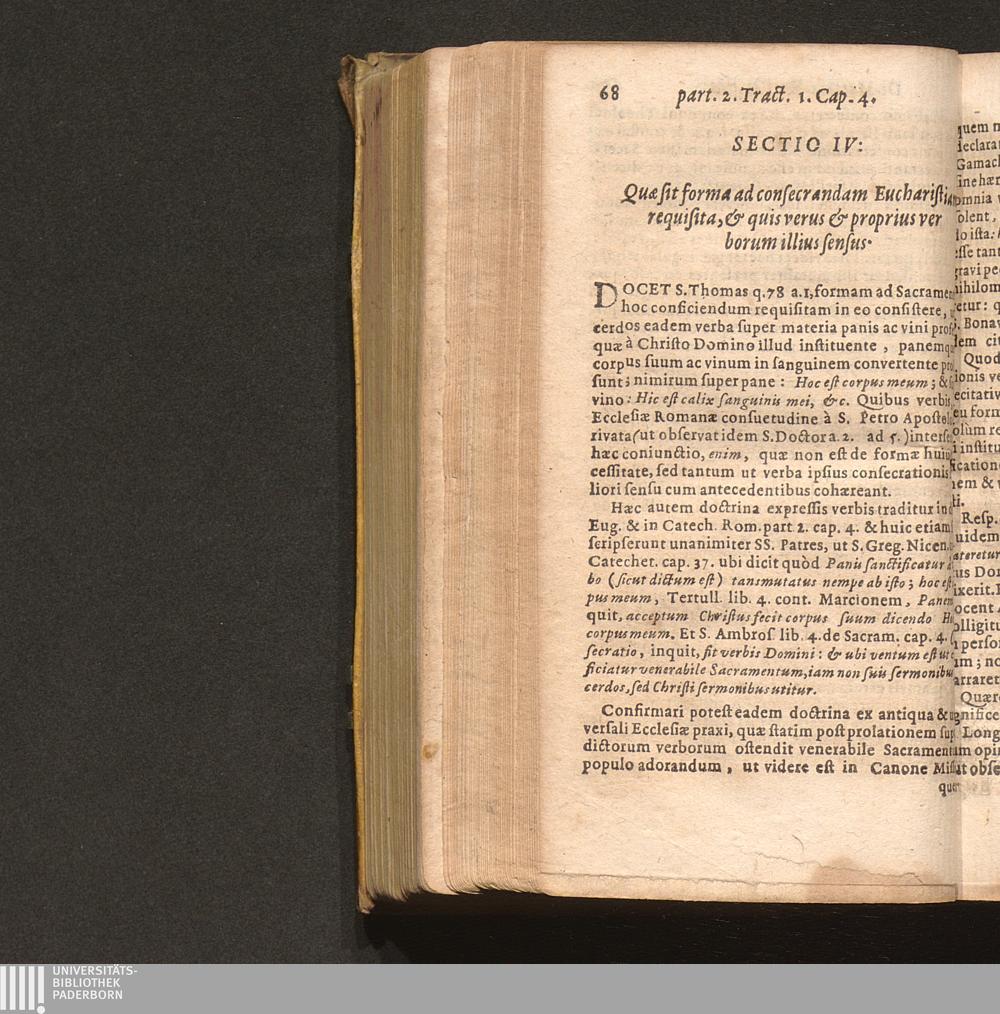 68 part. 2. Tract. 1. Cap. 4.
SECTIO IV:
Quæ sit forma ad consecrandam Eucharistiam
requisita, & quis verus & proprius ver
borum illius sensus.
DOCET S. Thomas q. 78 a. 1, formam ad Sacrame
hoc conficiendum requisitam in eo consistere,
cerdos eadem verba super materia panis ac vini
quæ à Christo Domino illud instituente, panem
corpus suum ac vinum in sanguinem convertente
sunt; nimirum super pane: Hoc est corpus meum; &
vino: Hic est calix sanguinis mei, &c. Quibus verbis
Ecclesiæ Romanæ consuetudine à S. Petro Apostol
rivata (ut observat idem S. Doctor a. 2. ad 5.) inter
hæc coniunctio, enim, quæ non est de formæ
cessitate, sed tantum ut verba ipsius consecrationis
liori sensu cum antecedentibus cohæreant.
Hæc autem doctrina expressis verbis traditur in
Eug. & in Catech. Rom. part 2. cap. 4. & huic etiam
scripserunt unanimiter SS. Patres, ut S. Greg. Nicen.
Catechet. cap. 37. ubi dicit quòd Panis sanctificatur
bo (sicut dictum est) tansmutatus nempe ab isto; hoc
pus meum, Tertull. lib. 4. cont. Marcionem, Panem
quit, acceptum Christus fecit corpus suum dicendo
corpus meum. Et S. Ambros. lib. 4. de Sacram. cap. 4.
secratio, inquit, fit verbis Domini: & ubi ventum est ut
ficiatur venerabile Sacramentum, iam non suis sermonibus
cerdos, sed Christi sermonibus utitur.
Confirmari potest eadem doctrina ex antiqua &
versali Ecclesiæ praxi, quæ statim post prolationem
dictorum verborum ostendit venerabile Sacramen
populo adorandum, ut videre est in Canone
quem
declara
Gamach
sine hær
omnia
solent,
esse tant
gravi pec
nihilom
Bonav
Quod
ionis ve
recitativ
eu form
instit
icatione
Resp.
uidem
ateretur
us Dom
ixerit.
ocent
olligitu
perso
im; no
arraret
Quær
gnifice
Long
um opi
ut obse
UNIVERSITÄTS-
BIBLIOTHEK
PADERBORN